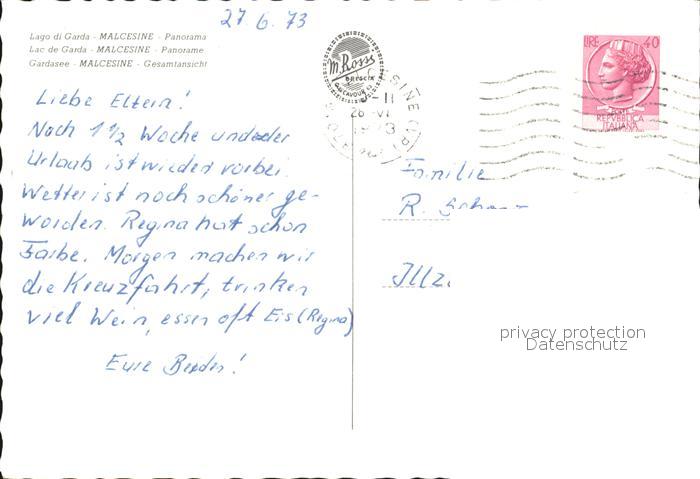 27.6.73
Lago di Garda - MALCESINE - Panorama
Lac de Garda - MALCESINE - Panorame
Gardasee - MALCESINE - Gesamtansicht
Liebe Eltern!
Noch 1 1/2 Woche und der
Urlaub ist wieder vorbei.
Wetter ist noch schöner ge-
worden. Regina hat schon
Farbe. Morgen machen wir
die Kreuzfahrt, trinken
viel Wein, essen oft Eis (Regina)
Eure Beiden!
M. Rossi
BRESCIA
26 VI
LIRE 40
REPVBBLICA
ITALIANA
Familie
R.
Illz.
privacy protection
Datenschutz